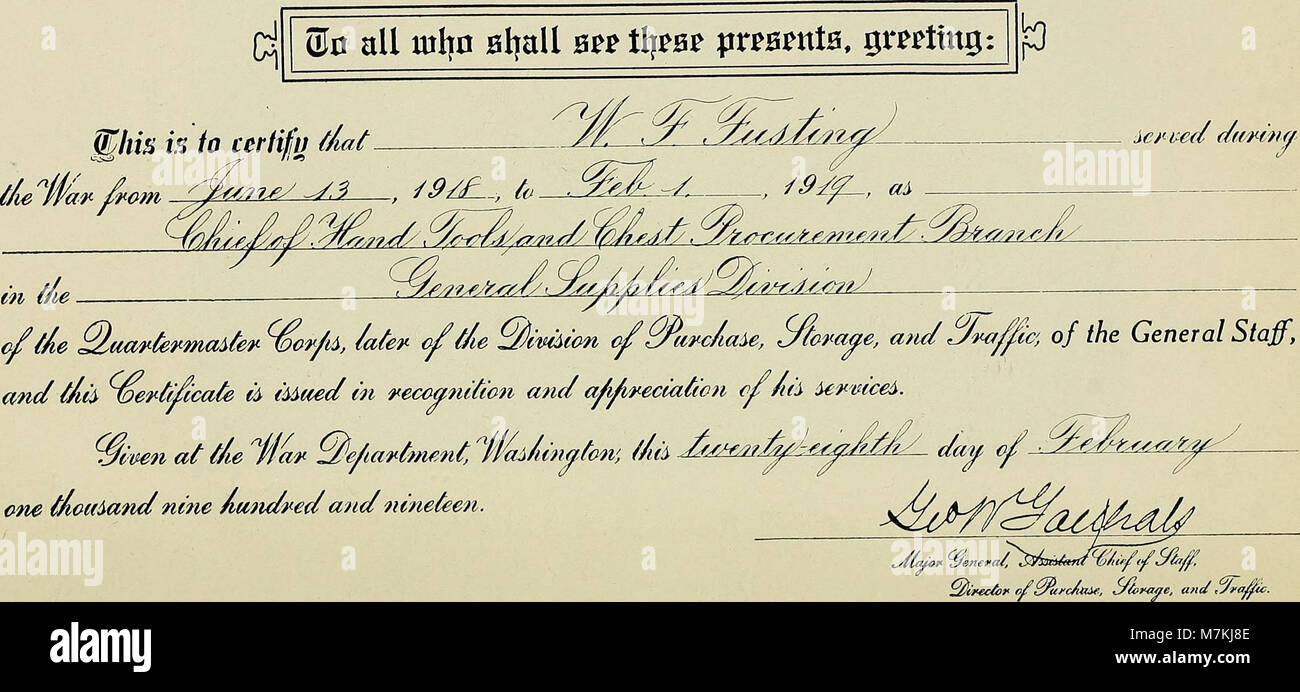 To all who shall see these presents, greeting:
This is to certify that W. F. Fusting served during
the War from June 13, 1918, to Feb 1., 1919, as
Chief of Hand Tools and Chest Procurement Branch
in the General Supplies Division
of the Quartermaster Corps, later of the Division of Purchase, Storage, and Traffic, of the General Staff,
and this Certificate is issued in recognition and appreciation of his services.
Given at the War Department, Washington, this twenty-eighth day of February
one thousand nine hundred and nineteen.
Geo W Goethals
Major General, Assistant Chief of Staff,
Director of Purchase, Storage, and Traffic.
alamy
Image ID: M7KJ8E
www.alamy.com